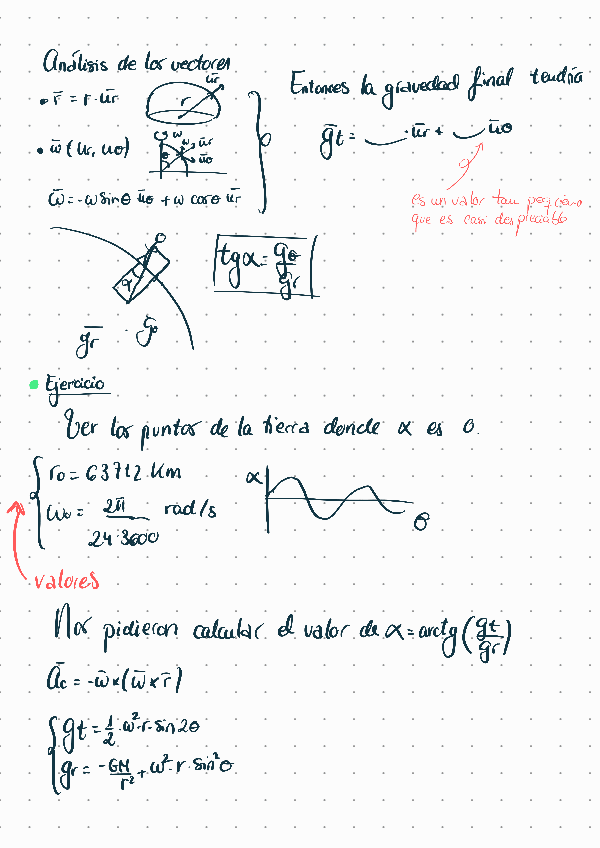 Análisis de los vectores
• r̄ = r · ūr
ūr
r
• w̄ (ur, uθ)
w
w
ūr
θ
ūθ
w̄ = -w sinθ ūθ + w cosθ ūr
Entonces la gravedad final tendría
ḡt = ___ · ūr + ___ ūθ
es un valor tan pequeño
que es casi despreciable
α
tgα = gθ/gr
ḡr · ḡθ
• Ejercicio
Ver los puntos de la tierra donde α es 0.
r0 = 63712 Km
w0 = 2π/24·3600 rad/s
α
θ
valores
Nos pidieron calcular el valor de α = arctg(gt/gr)
Āc = -w̄ × (w̄ × r̄)
gt = 1/2 · w² · r · sin 2θ
gr = -GM/r² + w² · r · sin²θ